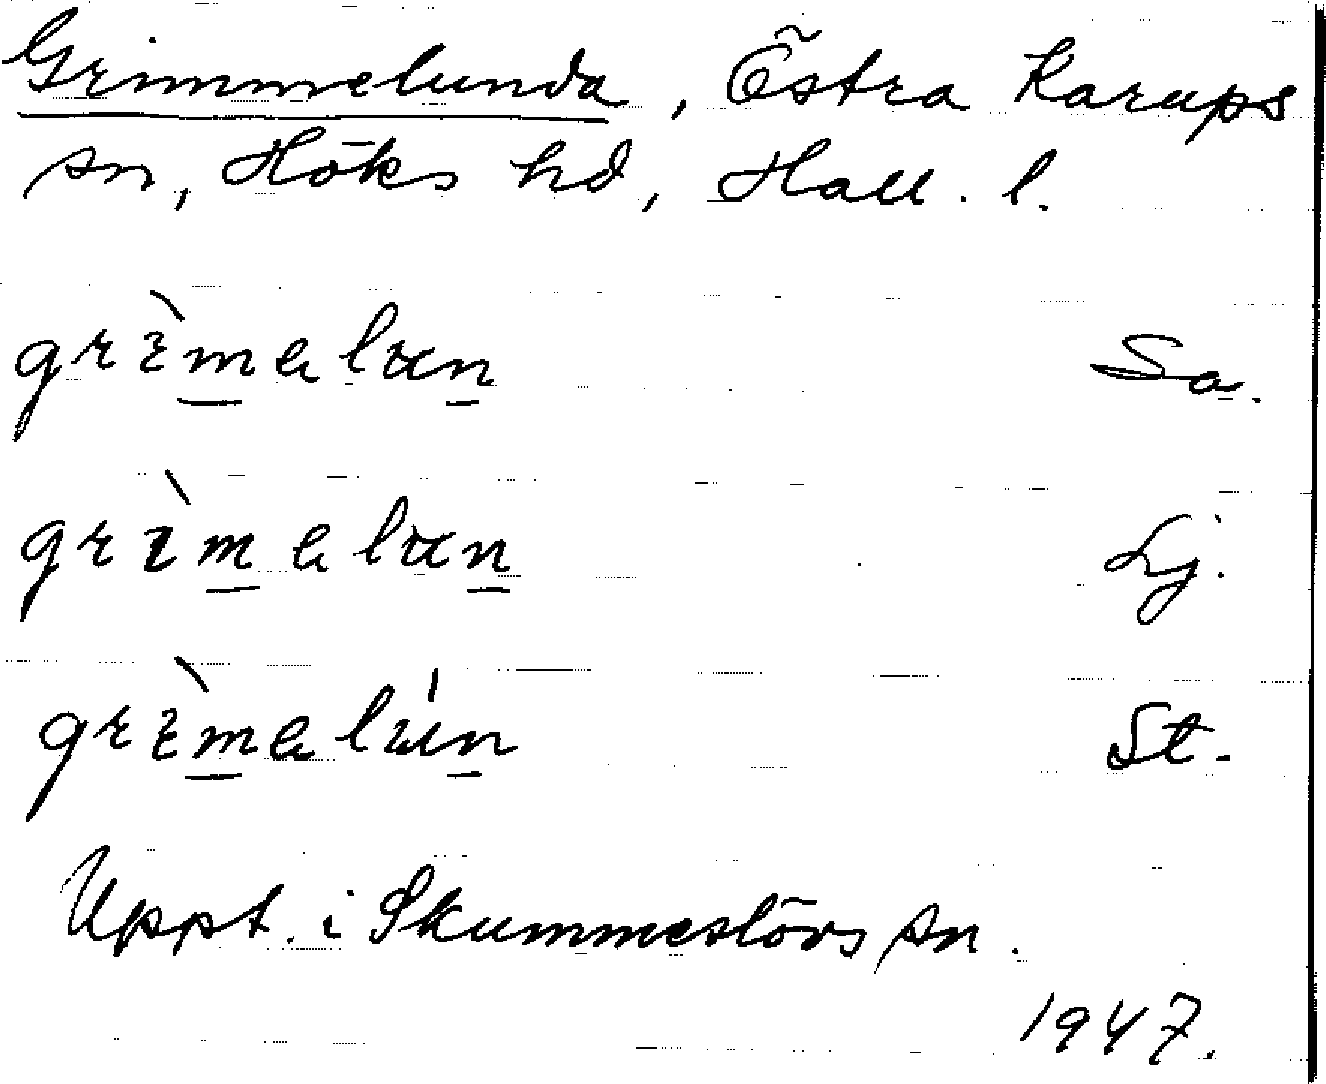 Grimmelunda, Östra Karups
sn, Höks hd, Hall. l.
grìmalun Sa.
grìmalun Lj.
grìmalún St.
Uppt. i Skummeslövs sn.
1947.